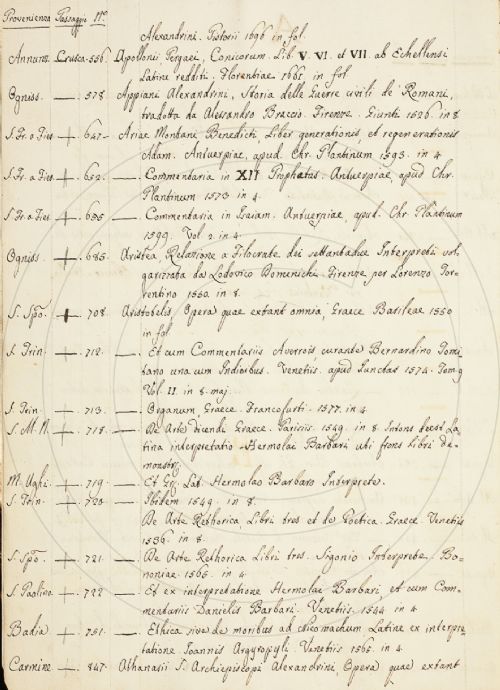 Provenienza Passaggio Nº.
Alexandrini. Pistorii 1696 in fol.
Annunz. Crusca. 556. Apollonii Pergaei, Conicorum. Lib. V. VI. et VII. ab Echellensi
Latine redditi. Florentiae 1661. in fol.
Ogniss. — 578 Appiani Alexandrini, Storia delle Guerre civili de Romani,
tradotta da Alessandro Braccio. Firenze. Giunti 1526. in 8
S. Fr. a Fies. + 647. Ariae Montani Benedicti, Liber generationis et regenerationis
Adam. Antuerpiae, apud. Chr. Plantinum 1593. in 4
S. Fr. a Fies. + 652. — Commentaria in XII Prophetas. Antuerpiae, apud Chr.
Plantinum 1573 in 4.
S. Fr. a Fies. + 655 — Commentaria in Isaiam. Antuerpiae, apud. Chr. Plantinum
1599. Vol 2. in 4.
Ogniss. + 685. Aristea, Relazione a Filocrate dei settantadue Interpreti vol,
garizzata da Lodovico Domenichi. Firenze per Lorenzo Tor,
rentino 1550. in 8.
S. Spō. + 708 Aristotelis, Opera quae extant omnia, Graece Basileae 1550
in fol.
S. Trin. + 712. — Et cum Commentariis Averrois, curante Bernardino Tomi,
tano una cum Indicibus. Venetiis. apud Junctas 1574. Tom 9
Vol. 11. in 8. maj.
S. Trin. — 713. — Organum, Graece. Francofurti. 1577. in 4
S. M. N. + 718. — De Arte dicendi Graece. Parisiis. 1549. in 8. La,
tina interpretatio Hermolai Barbari uti frons libri de,
monstrat.
M. Ughi. + 719. — Et Lat. Hermolao Barbaro Interprete.
S. Trin. — 720 — Ibidem 1549. in 8.
De Arte Rethorica, Libri tres et de Poetica. Graece. Venetiis
1536. in 8.
S. Spō. + 721. — De Arte Rethorica Libri tres. Sigonio Interprete. Bo,
noniae. 1565. in 4
S. Paolino + 722 — Et ex interpretatione Hermolai Barbari, et cum Com,
mentariis Danielis Barbari. Venetiis. 1544 in 4
Badia + 751. — Ethica sive de moribus ad Nicomachum. Latine ex interpre,
tatione Joannis Argyropyli. Venetiis 1565. in 4.
Carmine. + 847. Athanasii S. Archiepiscopi Alexandrini, Opera quae extant